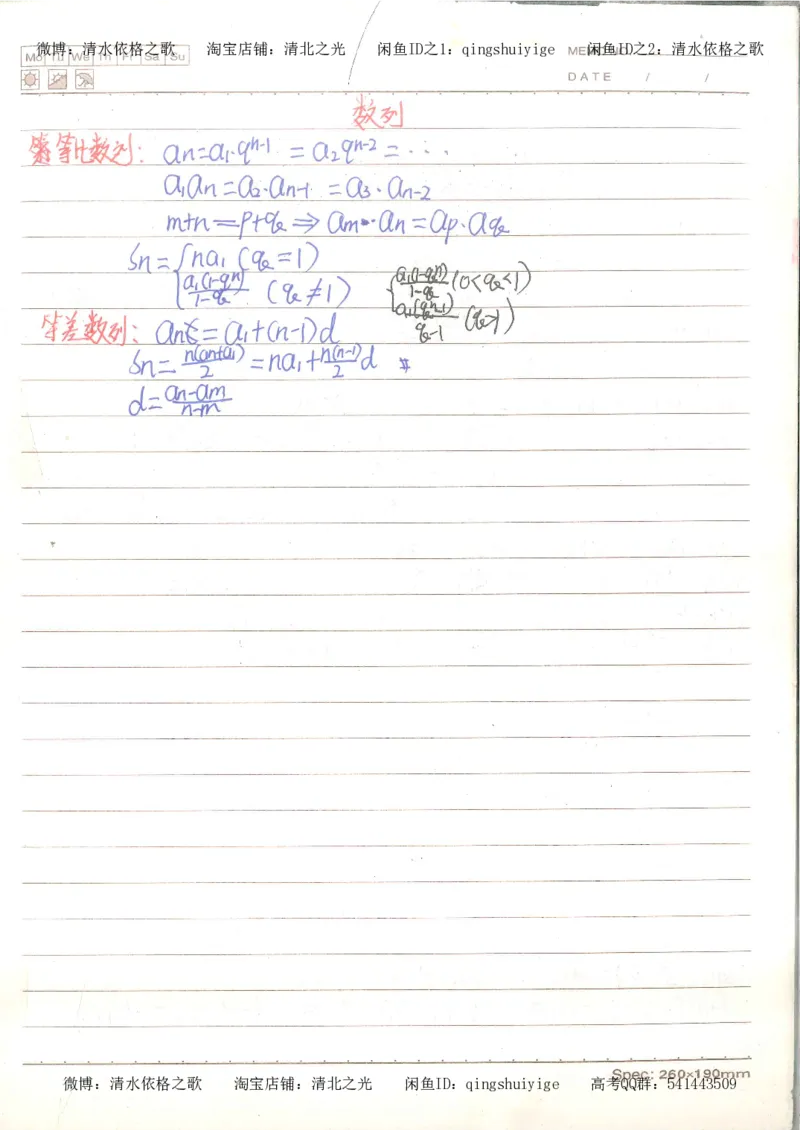 微博：清水依格之歌 淘宝店铺：清北之光 闲鱼ID之1：qingshuiyige 闲鱼ID之2：清水依格之歌
Mo Tu We Th Fr Sa Su
DATE / /
数列
等比数列：an=a1·q^{n-1} =a2q^{n-2}=···
a1an=a2·an-1 =a3·an-2
m+n=p+q⇒am·an=ap·aq
Sn={na1 (q=1)
a1(1-q^n)/1-q (q≠1) {a1(1-q^n)/1-q (0<q<1)
a1(q^n-1)/q-1 (q>1)
等差数列：an=a1+(n-1)d
Sn=n(an+a1)/2=na1+n(n-1)/2d
d=an-am/n-m
Spec: 260×190mm
微博：清水依格之歌 淘宝店铺：清北之光 闲鱼ID：qingshuiyige 高考QQ群：541443509